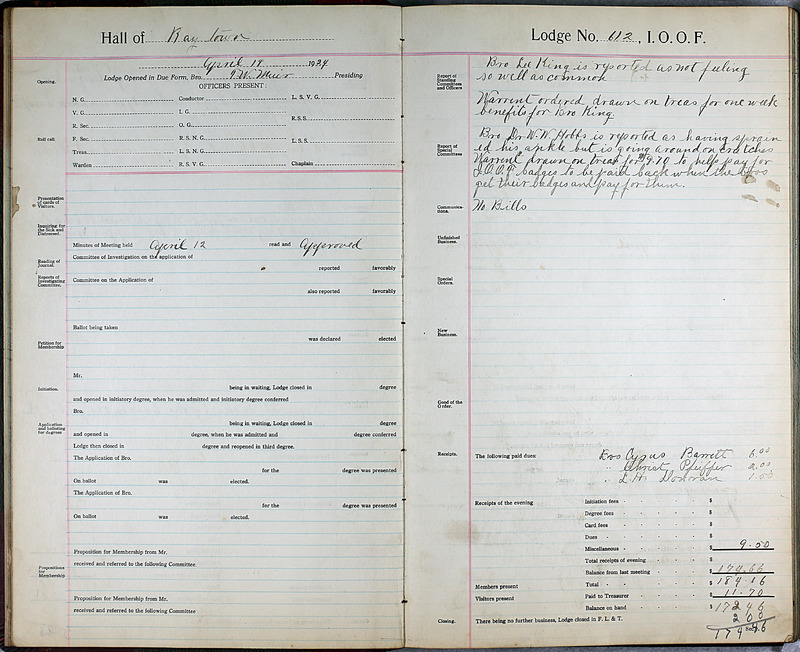 Hall of Kaytown
April 18 1924
Lodge Opened in Due Form, Bro. J W Muir Presiding
OFFICERS PRESENT:
Opening.
N. G. Conductor L. S. V. G.
V. G. I. G.
R. Sec. O. G. R.S.S.
Roll call.
F. Sec. R. S. N. G.
Treas. L. S. N. G. L.S.S.
Warden R. S. V. G. Chaplain
Presentation of cards of Visitors.
Inquiring for the Sick and Distressed.
Minutes of Meeting held April 12 read and Approved
Reading of Journal.
Committee of Investigation on the application of
reported favorably
Reports of Investigating Committee.
Committee on the Application of
also reported favorably
Ballot being taken
was declared elected
Petition for Membership
Mr.
being in waiting, Lodge closed in degree
Initiation.
and opened in initiatory degree, when he was admitted and initiatory degree conferred
Bro.
being in waiting, Lodge closed in degree
Application and balloting for degrees
and opened in degree, when he was admitted and degree conferred
Lodge then closed in degree and reopened in third degree.
The Application of Bro.
for the degree was presented
On ballot was elected.
The Application of Bro.
for the degree was presented
On ballot was elected.
Proposition for Membership from Mr.
received and referred to the following Committee
Propositions for Membership
Proposition for Membership from Mr.
received and referred to the following Committee
Lodge No. 112, I. O. O. F.
Report of Standing Committees and Officers
Bro Lee King is reported as not feeling
so well as common
Warrent ordered drawn on treas for one week
benefits for Bro King.
Report of Special Committees
Bro Dr W. W. Hobbs is reported as having sprain
ed his ankle but is going around on crutches
Warrent drawn on treas for $9.70 to help pay for
I.O.O.F. badges to be paid back when the Bros
get their badges and pay for them.
Communications.
No Bills
Unfinished Business.
Special Orders.
New Business.
Good of the Order.
Receipts.
The following paid dues: Bros Cyrus Barrett 6.00
" Christ Pfeffer 2.00
" L. H. Donovan 1.50
Receipts of the evening Initiation fees $
Degree fees $
Card fees $
Dues $
Miscellaneous $ 9.50
Total receipts of evening $
Balance from last meeting $ 174.66
Members present Total $ 184.16
Visitors present Paid to Treasurer $ 11.70
Balance on hand $ 172 46
2 00
Closing.
There being no further business, Lodge closed in F. L. & T.
174 46